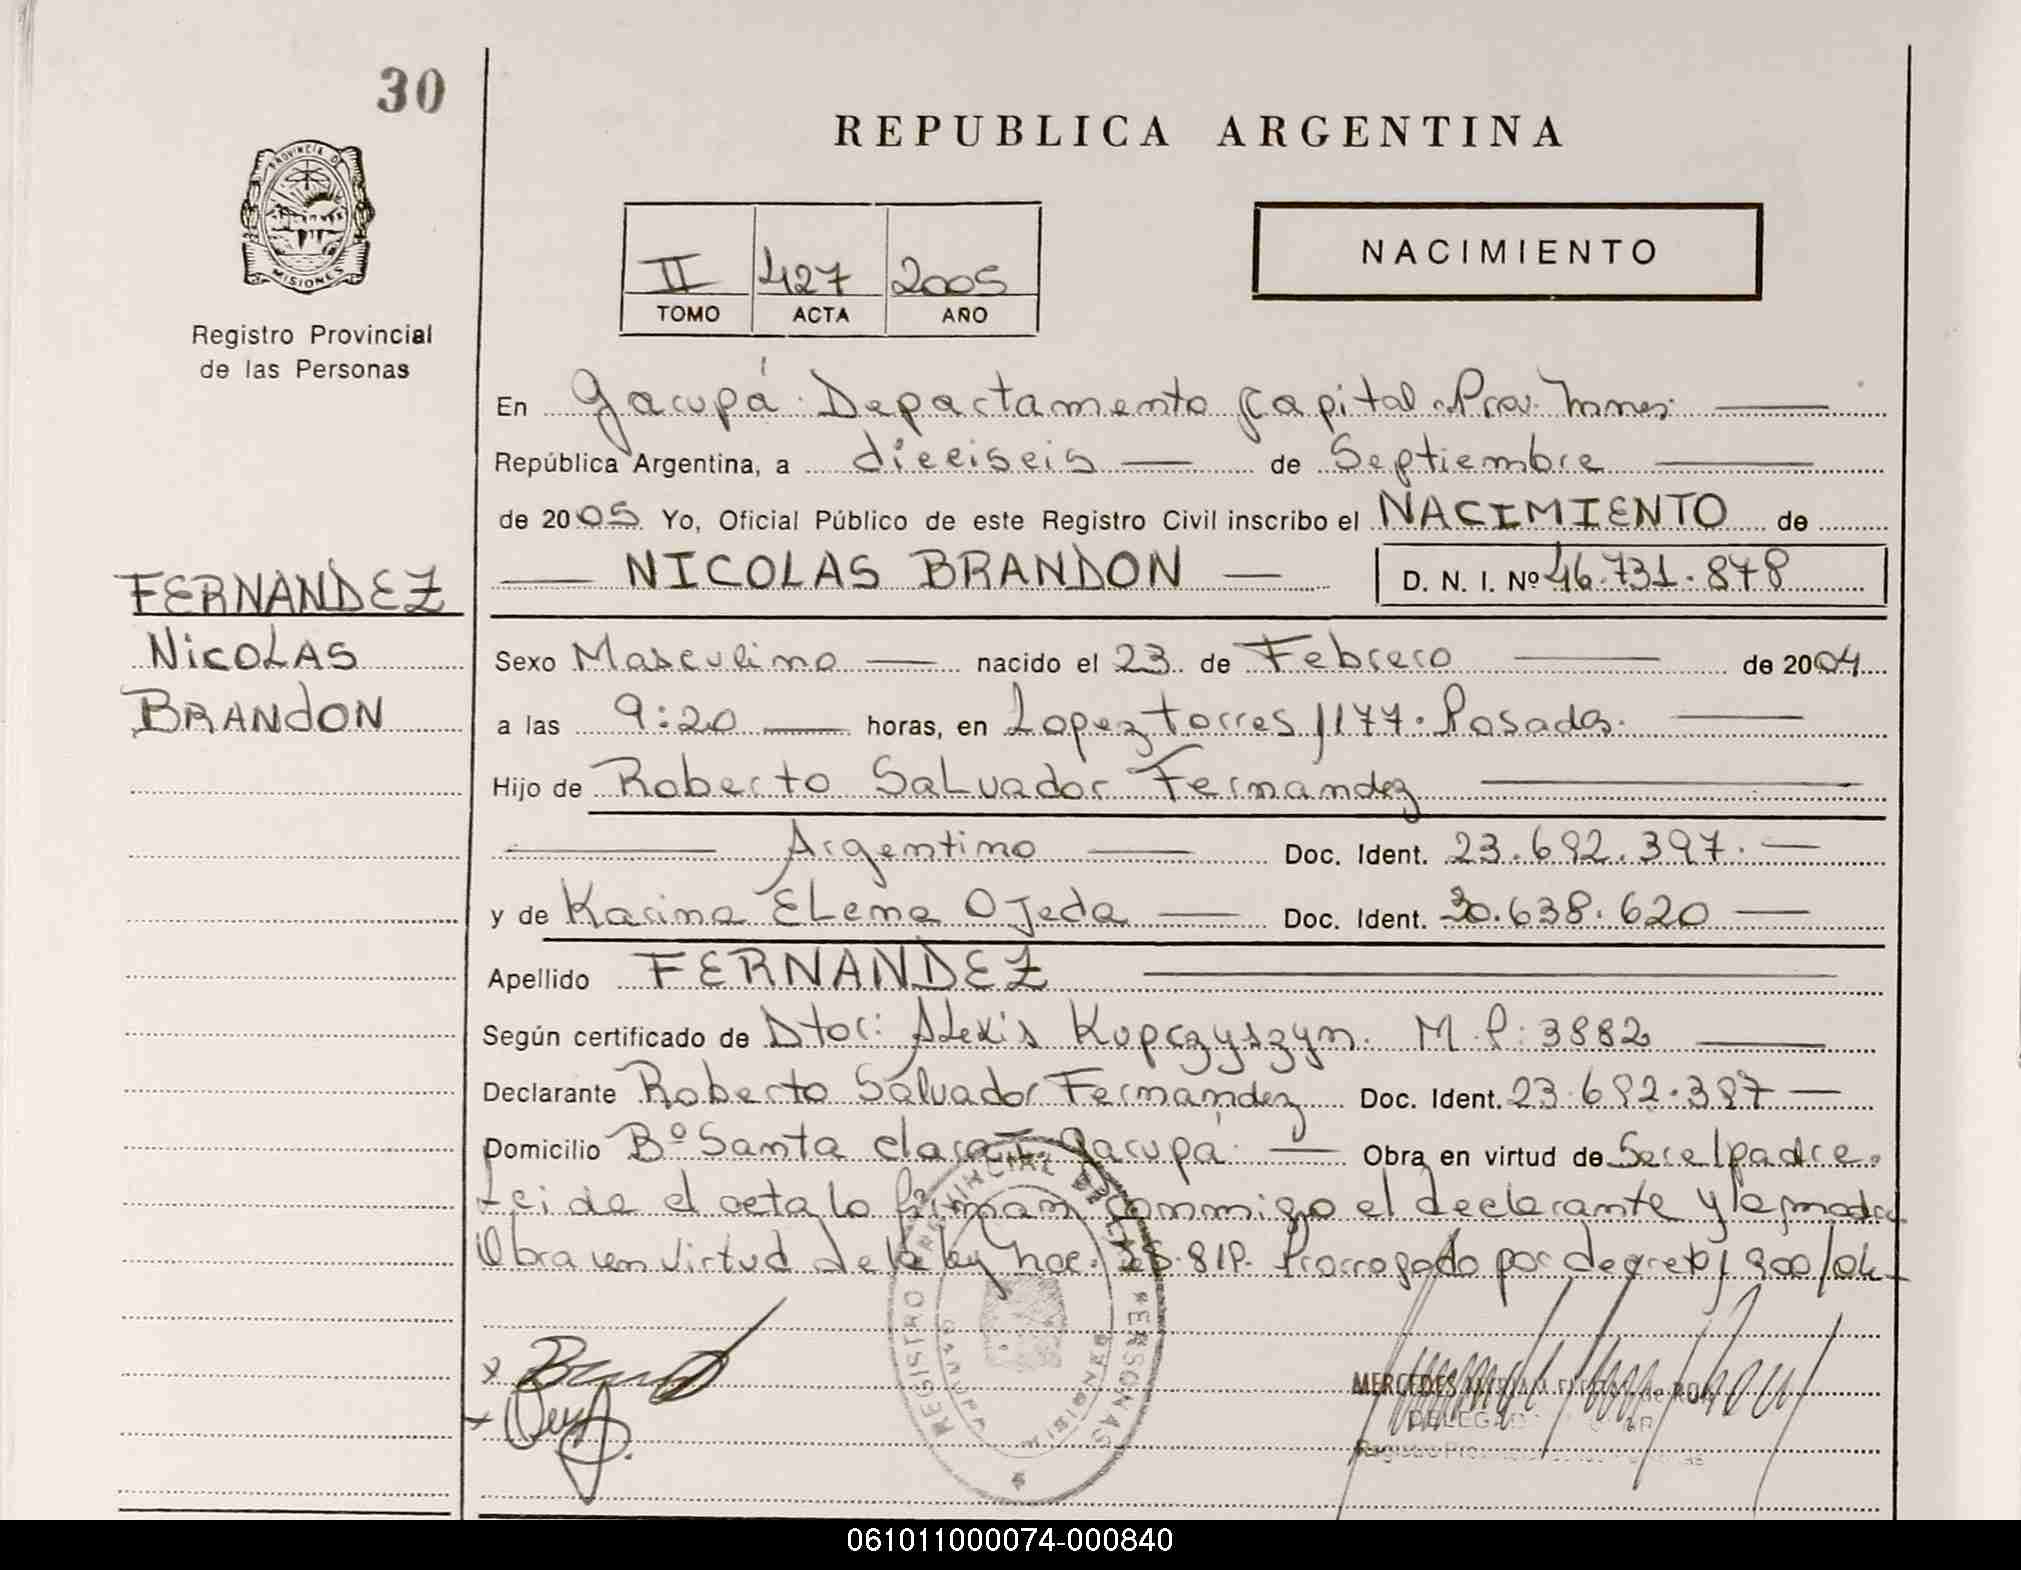 30
REPUBLICA ARGENTINA
PROVINCIA DE
MISIONES
Registro Provincial
de las Personas
II 427 2005
TOMO ACTA AÑO
NACIMIENTO
En Garupá Departamento Capital Prov. Mnes.
República Argentina, a dieciseis de Septiembre
de 2005 Yo, Oficial Público de este Registro Civil inscribo el NACIMIENTO de
NICOLAS BRANDON D. N. I. Nº 46.731.878
FERNANDEZ
NicoLAS
BRANdON
Sexo Masculino nacido el 23 de Febrero de 2004
a las 9:20 horas, en Lopez torres 1177. Posadas.
Hijo de Roberto Salvador Fernandez
Argentino Doc. Ident. 23.692.397.
y de Karina Elena Ojeda Doc. Ident. 30.638.620
Apellido FERNANDEZ
Según certificado de Dtor: Alexis Kopczyszyn. M.P: 3882
Declarante Roberto Salvador Fernandez Doc. Ident. 23.692.397
Domicilio Bº Santa clara I Garupá Obra en virtud de Ser el padre.
Leida el acta lo firman conmigo el declarante y la madre
Obra en virtud de la ley nac. 25.819. Prorrogado por decreto 900/04
REGISTRO PROVINCIAL DE LAS PERSONAS
MERCEDES MIRIAM
DELEGADA
Registro Provincial de las Personas
061011000074-000840